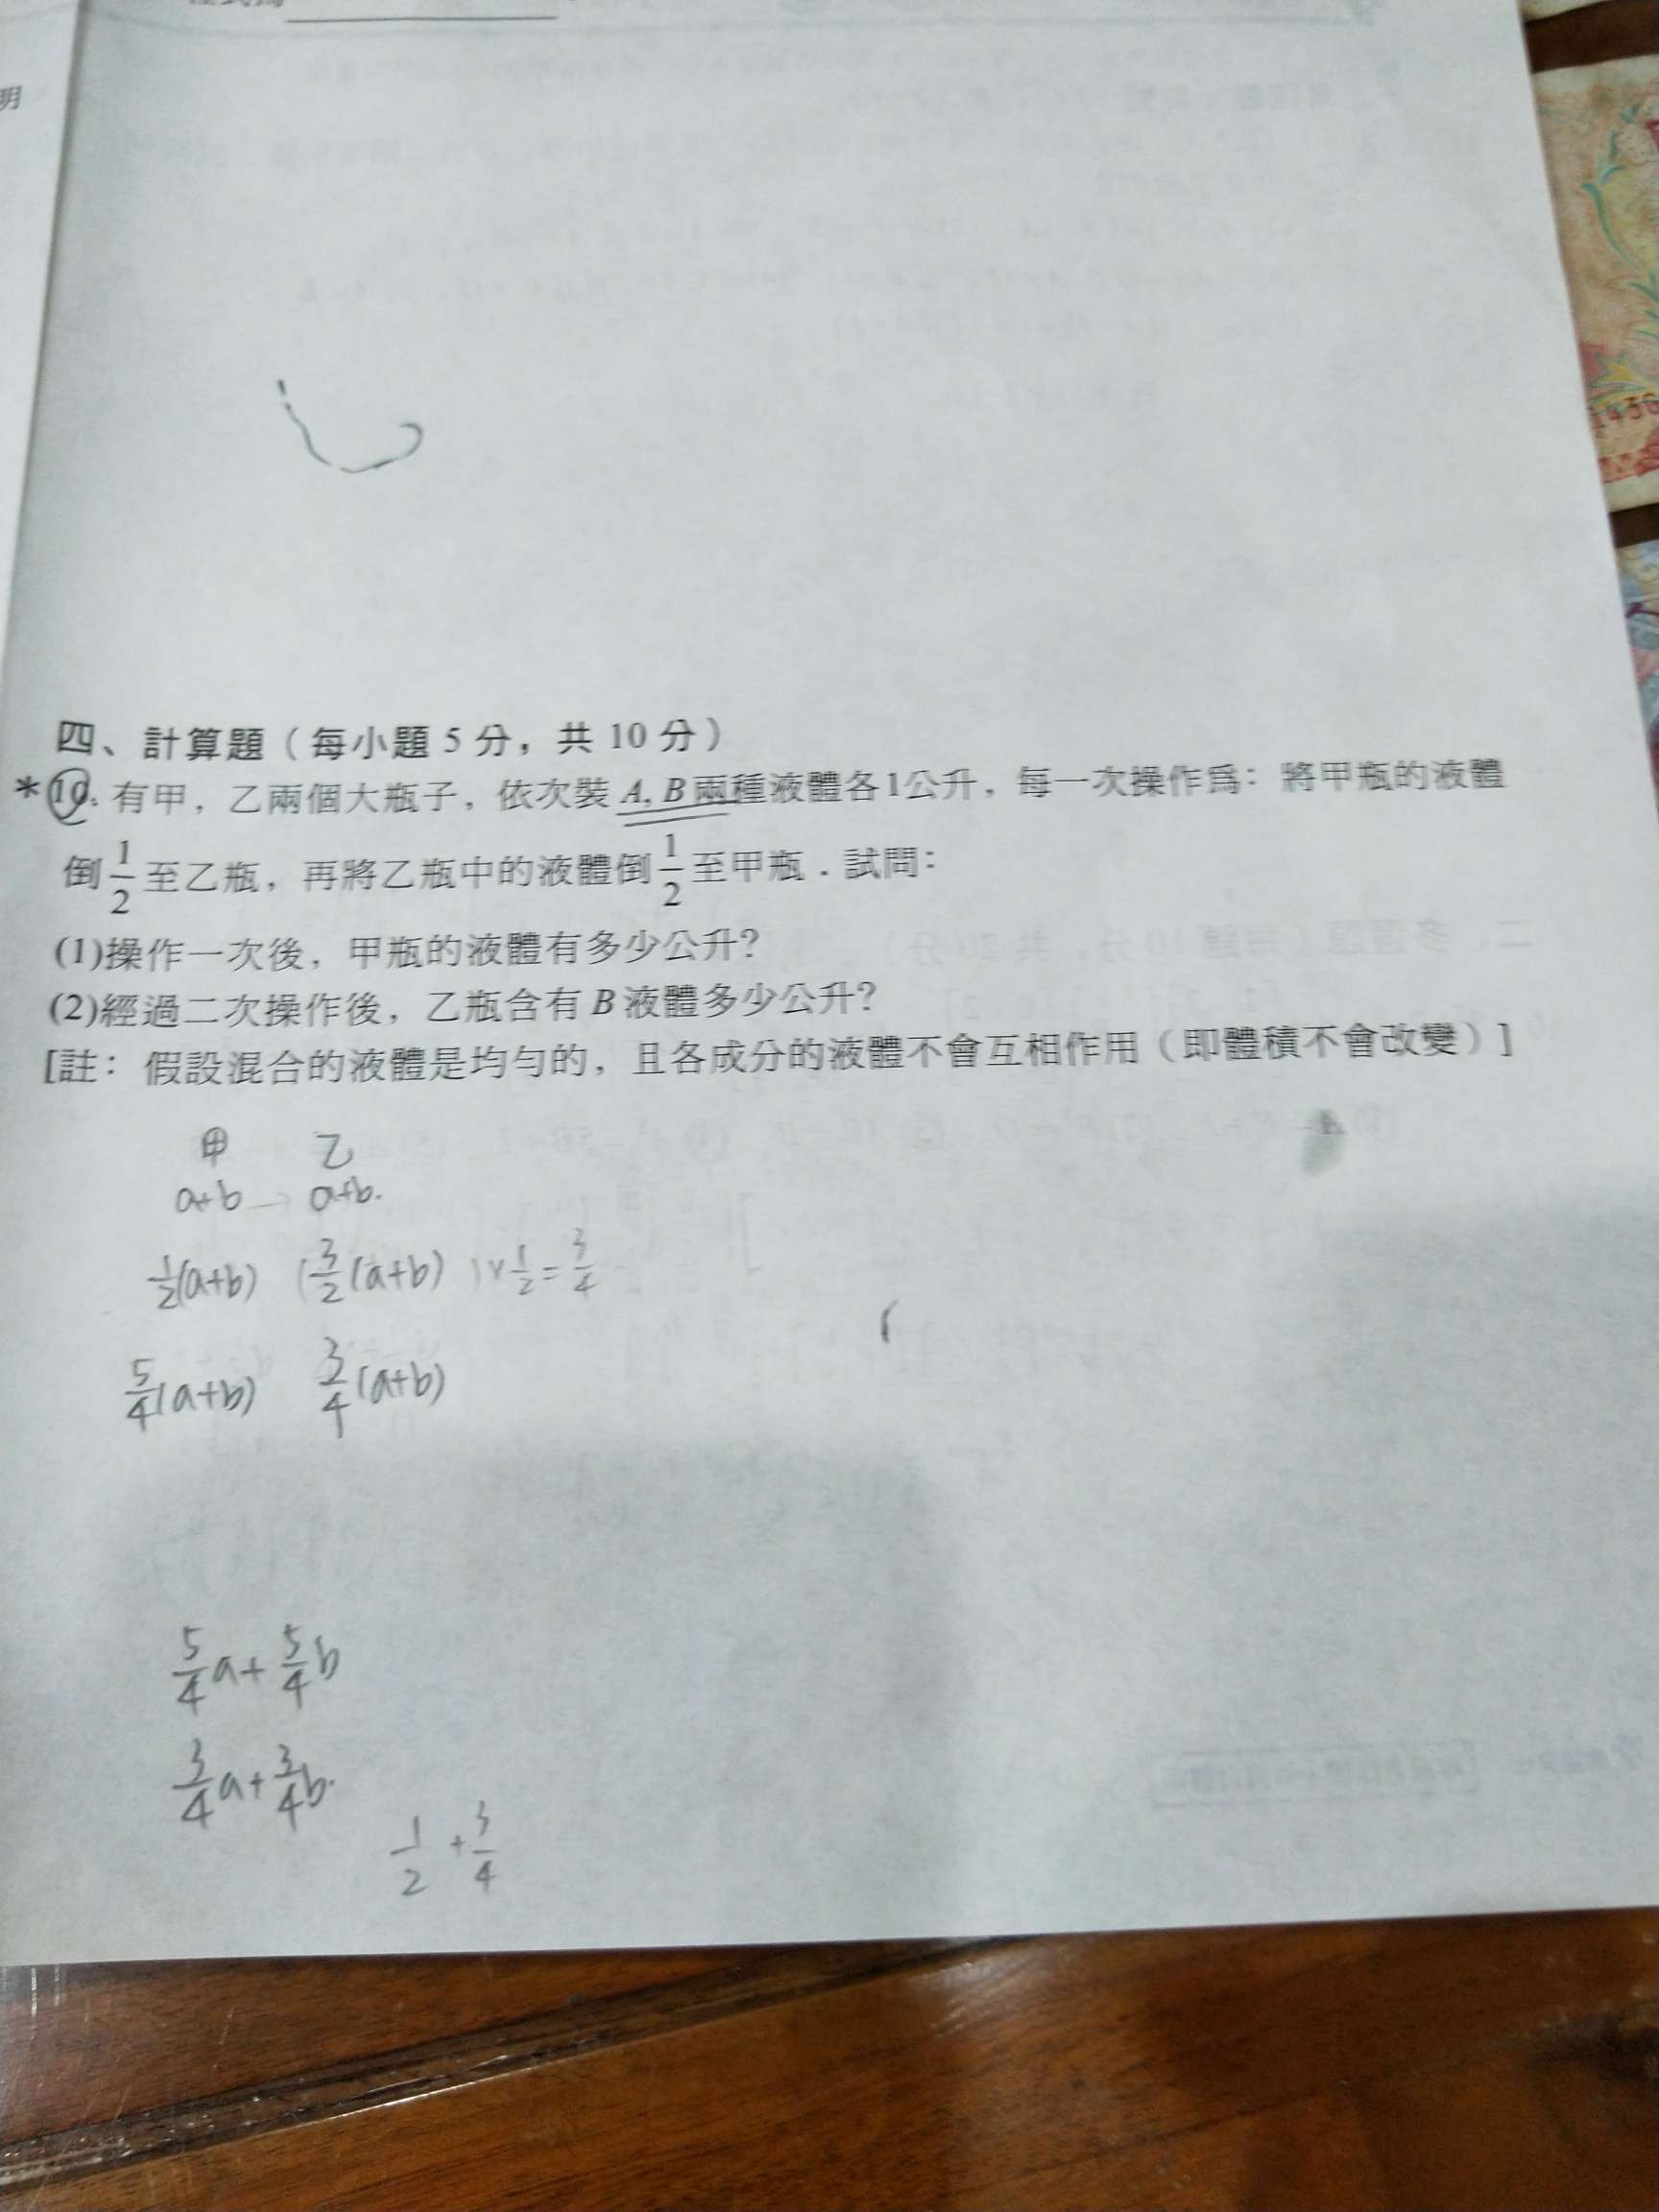 明
四、計算題（每小題 5 分，共 10 分）
*10. 有甲，乙兩個大瓶子，依次裝 A, B 兩種液體各1公升，每一次操作為：將甲瓶的液體
倒 1/2 至乙瓶，再將乙瓶中的液體倒 1/2 至甲瓶．試問：
(1)操作一次後，甲瓶的液體有多少公升？
(2)經過二次操作後，乙瓶含有 B 液體多少公升？
[註：假設混合的液體是均勻的，且各成分的液體不會互相作用（即體積不會改變）]
甲 乙
a+b → a+b.
1/2(a+b) (3/2(a+b))×1/2=3/4
5/4(a+b) 3/4(a+b)
5/4a+5/4b
3/4a+3/4b.
1/2+3/4